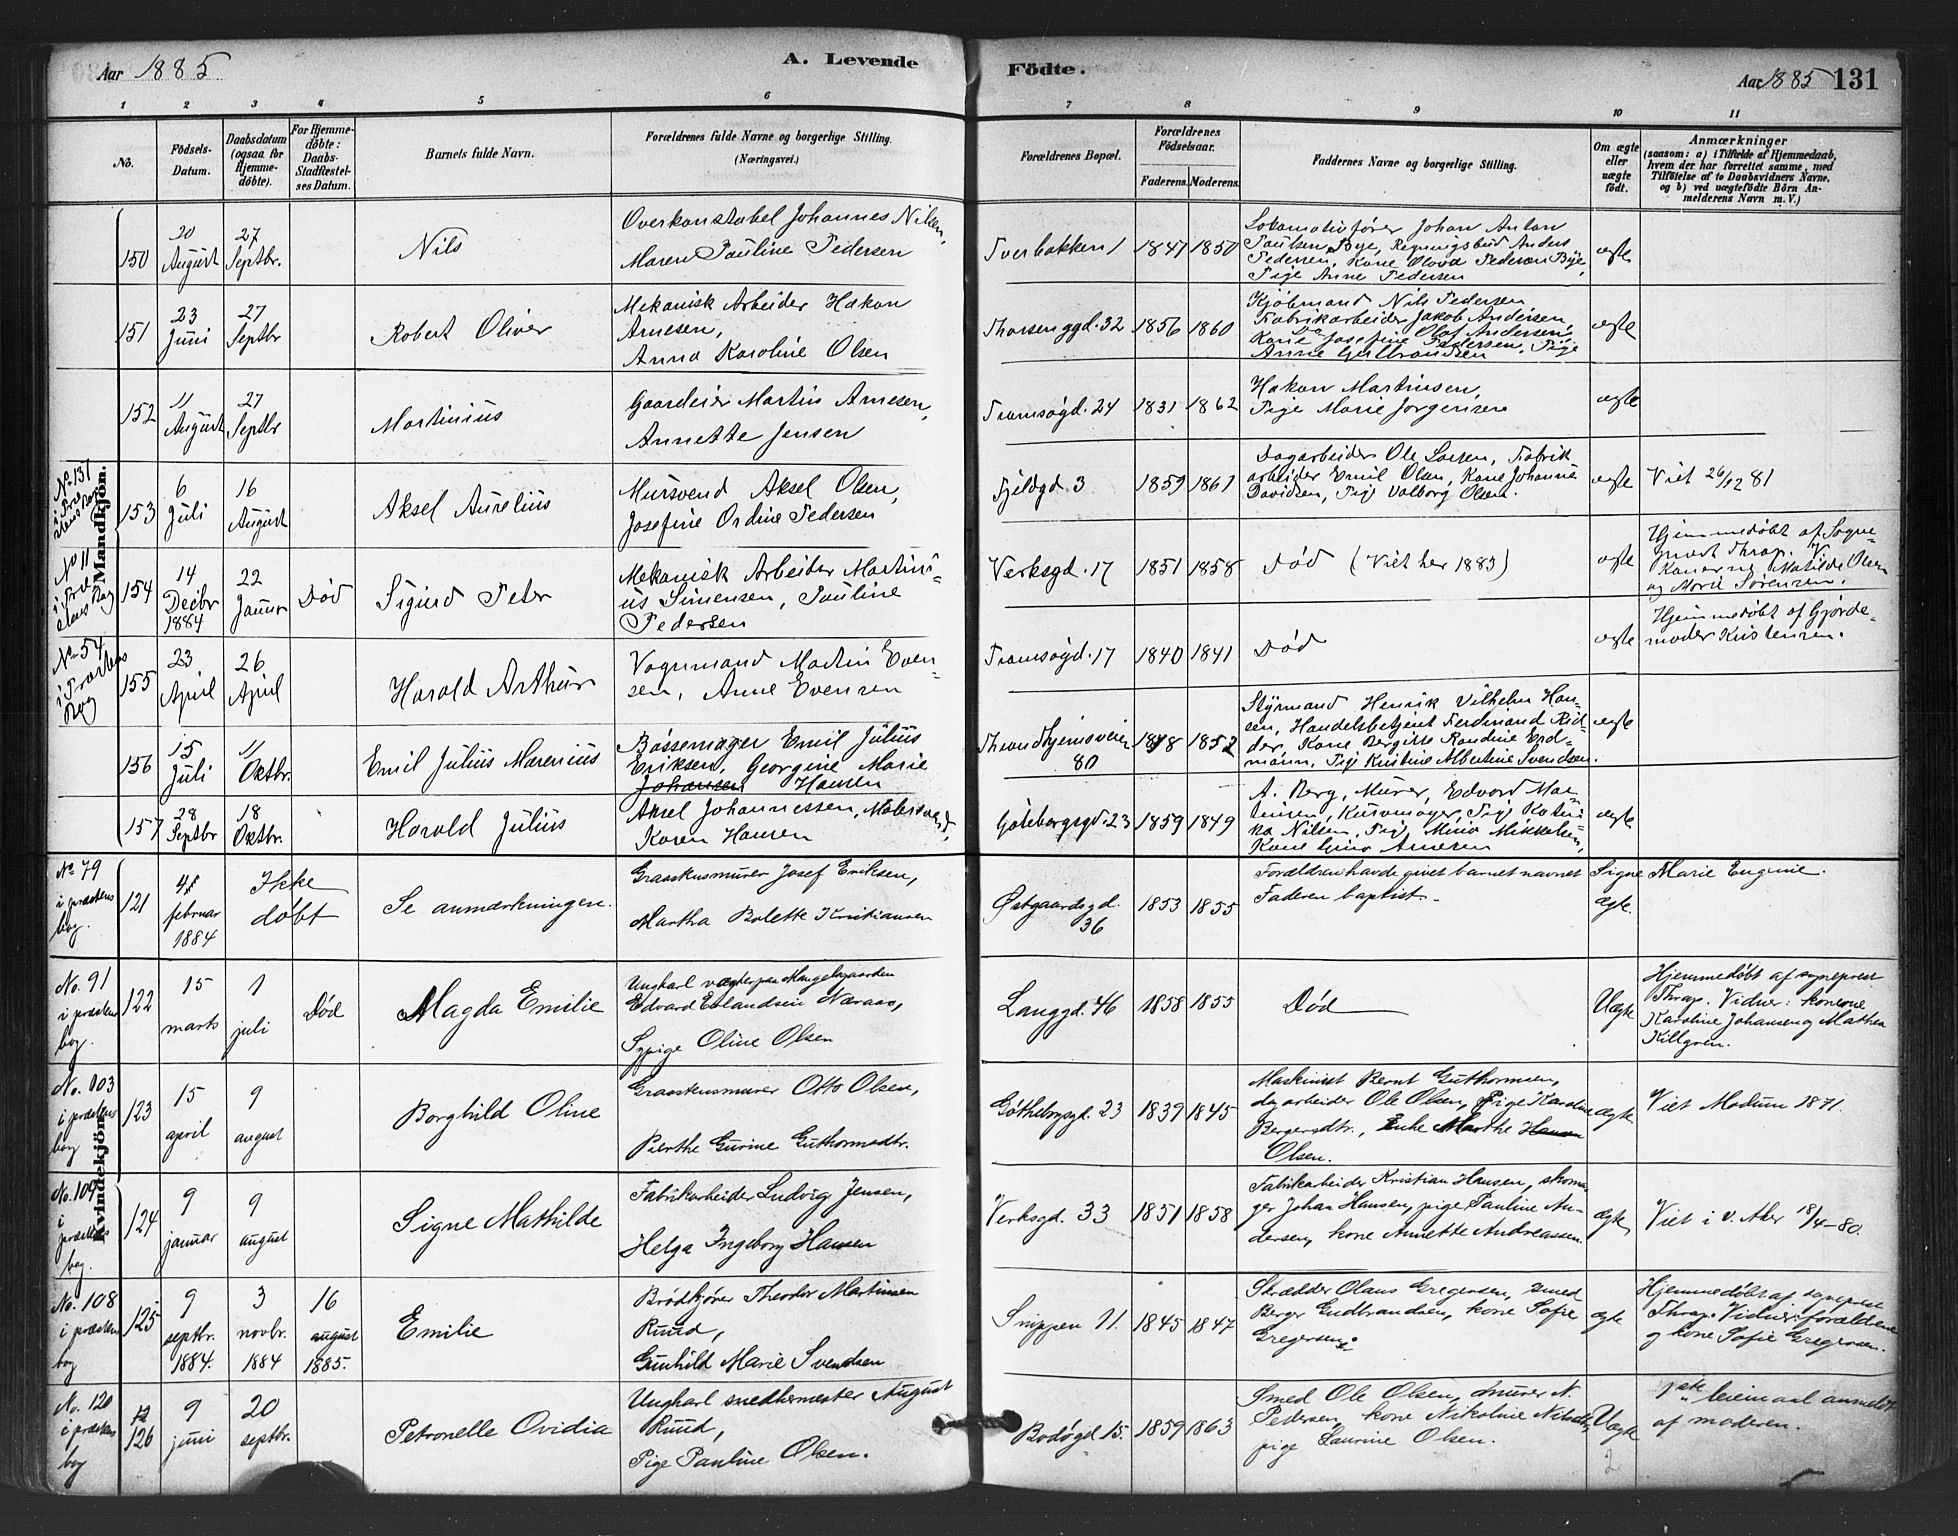 Aar 1885
A. Levende
Födte.
Aar 1885 131
1 2 3 4 5 6 7 8 9 10 11
No.
Födsels-
Datum.
Daabsdatum
(ogsaa for
Hjemme-
döbte).
For Hjemme-
döbte:
Daabs-
Stadfæstel-
ses Datum.
Barnets fulde Navn.
Forældrenes fulde Navne og borgerlige Stilling.
(Næringsvei.)
Forældrenes Bopæl.
Forældrenes
Födselsaar.
Faderens. Moderens.
Faddernes Navne og borgerlige Stilling.
Om ægte
eller
uægte
födt.
Anmærkninger
(saasom: a) i Tilfælde af Hjemmedaab,
hvem der har forrettet samme, med
Tilföielse af to Daabsvidners Navne,
og b) ved uægtefödte Börn An-
melderens Navn m. V.)
Mandkjön.
150
20
August
27
Septbr.
Nils
Overkonstabel Johannes Nilsen,
Maren Pauline Pedersen
Tverbakken 1
1847 1850
Lokomotivfører Johan Anton
Paulsen Bye, Regningsbud Anders
Pedersen, Kone Olova Pedersen Bye,
Pige Anne Pedersen
ægte
151
23
Juni
27
Septbr
Robert Oliver
Mekanisk Arbeider Hakon
Arnesen,
Anna Karoline Olsen
Thorsenggd. 32
1856 1860
Kjøbmand Nils Pedersen
Fabrikarbeider Jakob Andersen,
Do Olaf Andersen,
Kone Josefine Pedersen, Pige
Anne Gulbrandsen
ægte
152
11
August
27
Septbr
Martinius
Gaardeier Martin Arnesen,
Annette Jensen
Tromsøgd. 24
1831 1862
Hakon Martinsen,
Pige Marie Jørgensen
ægte
No 131
153
6
Juli
16
August
Aksel Aurelius
Mursvend Aksel Olsen,
Josefine Ordine Pedersen
Fjeldgd. 3
1859 1861
Dagarbeider Ole Larsen, Fabrik
arbeider Emil Olsen, Kone Johanne
Davidsen, Pige Valborg Olsen.
ægte
Viet 26/12 81
No 11
154
14
Decbr
1884
22
Januar
Død
Sigurd Peter
Mekanisk Arbeider Martini-
us Simensen, Pauline
Pedersen
Verksgd. 17
1851 1858
Død (Viet her 1883)
ægte
Hjemmedøbt af Sogne-
prest Thrap. V:
Konerne Matilde Olsen
og Marie Sørensen.
No 54
i Prestens
Bog
155
23
April
26
April
Harald Arthur
Vognmand Martin Even-
sen, Anne Evensen
Tromsøgd. 17
1840 1841
Død
ægte
Hjemmedøbt af Gjorde-
moder Kristensen.
156
15
Juli
11
Oktbr.
Emil Julius Marenius
Bøssemager Emil Julius
Eriksen, Georgine Marie
Johansen Hansen
Trondhjemsveien
80
1848 1852
Styrmand Henrik Vilhelm Han-
sen, Handelsbetjent Ferdinand Rid-
der, Kone Bergitte Randine Erd-
mann, Pige Kristine Albertine Svendsen.
ægte
157
28
Septbr
18
Oktbr.
Harald Julius
Aksel Johannessen, Malersvend,
Karen Hansen
Gøtebergsgd. 23
1859 1849
A. Berg, Murer, Edvard Mar-
tinsen, Kurvmager, Pige Katin-
ka Nilsen, Pige Mina Mikkelsen,
Kone Gina Arnesen
ægte
Kvindekjön.
No 79
i præstens
bog.
121
4
februar
1884
Ikke
døbt
Se anmærkningen.
Graastensmurer Josef Eriksen,
Martha Bolette Kristiansen
Østgaardsgd.
36
1853 1855
Forældrene havde givet barnet navnet Signe Marie Eugenie.
Faderen baptist.
Ægte.
No. 91
i præstens
bog.
122
15
marts
1
juli
Død
Magda Emilie
Ungkarl vægter paa Mangelsgaarden
Edvard Erlandsen Næraas,
Sypige Oline Olsen
Langgd. 46
1858 1855
Død
Uægte
Hjemmedøbt af sogneprest
Thrap. Vidner: konerne
Karoline Johansen og Mathea
Killgren.
No. 103
i præstens
bog
123
15
april
9
august
Borghild Oline
Graastensmurer Otto Olsen,
Berthe Gurine Guthormsdtr.
Gøtheborgsgd. 23
1839 1845
Maskinist Bernt Guthormsen,
dagarbeider Ole Olsen, Pige Karoline
Bergersdtr., Enke Marthe Hansen
Olsen.
ægte
Viet Modum 1871.
No. 109
i
præstens
bog.
124
9
januar
9
august
Signe Mathilde
Fabrikarbeider Ludvig Jensen,
Helga Ingeborg Hansen
Verksgd. 33
1851 1858
Fabrikarbeider Kristian Hansen, skoma-
ger Johan Hansen, pige Pauline An-
dersen, kone Annette Andreassen.
ægte
Viet i V. Aker 18/4-80.
No. 108
i præstens
bog
125
9
septbr.
1884.
3
novbr.
1884
16
august
1885.
Emilie
Brødkjører Theodor Martinsen
Ruud,
Gunhild Marie Svendsen
Snippen 11.
1845 1847
Skrædder Olaus Gregersen, smed
Berger Gudbrandsen, kone Sofie
Gregersen.
ægte
Hjemmedøbt af sogneprest
Thrap. Vidner: forældrene
og kone Sofie Gregersen.
No. 120
i præstens
bog
126
9
juni
20
septbr.
Petronelle Ovidia
Ungkarl smedhemester August
Ruud,
Pige Pauline Olsen.
Bodøgd 15.
1859 1863
Smed Ole Olsen, murer N.
Pedersen, kone Nikoline Nilsen,
pige Laurine Olsen.
Uægte
2
1ste leiermaal anmeldt
af moderen.